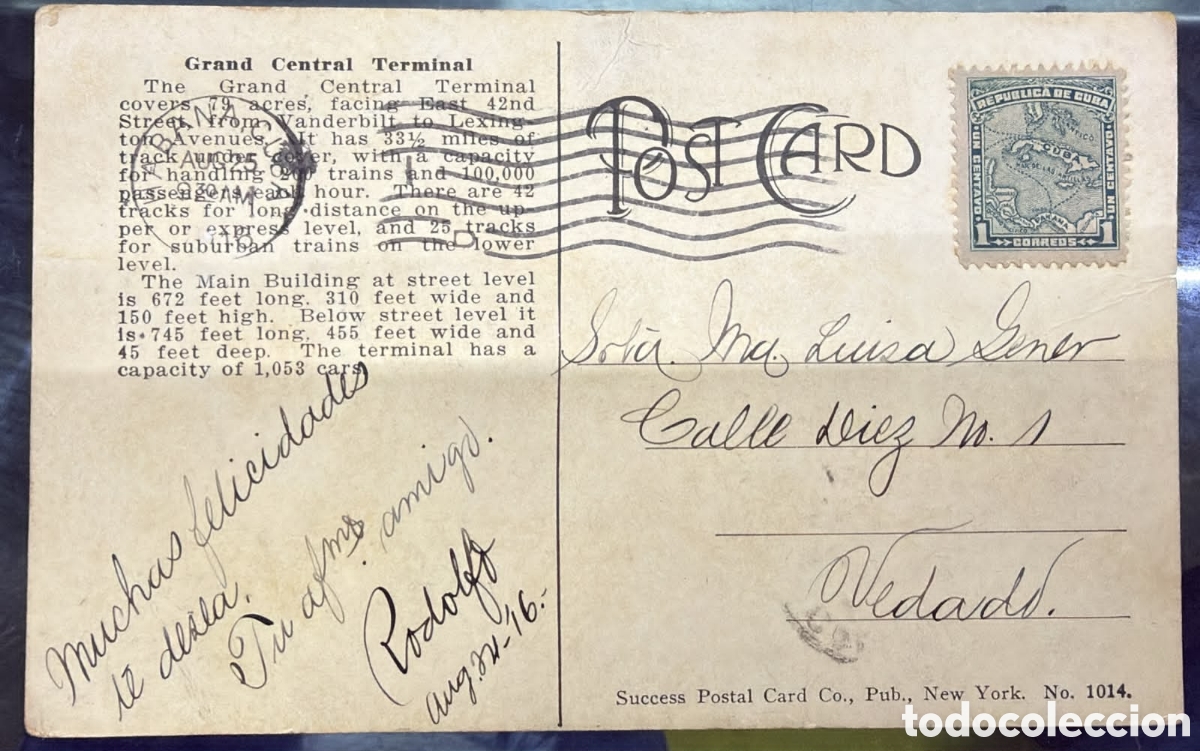 Grand Central Terminal
The Grand Central Terminal
covers 79 acres, facing East 42nd
Street from Vanderbilt to Lexing-
ton Avenues. It has 33½ miles of
track under cover, with a capacity
for handling 200 trains and 100,000
passengers each hour. There are 42
tracks for long distance on the up-
per or express level, and 25 tracks
for suburban trains on the lower
level.
The Main Building at street level
is 672 feet long. 310 feet wide and
150 feet high. Below street level it
is 745 feet long, 455 feet wide and
45 feet deep. The terminal has a
capacity of 1,053 cars
HABANA
AUG 25
9 30 AM
Muchas felicidades
te desea.
Tu afmo amigo.
Rodolfo
Aug. 24-'16.-
POST CARD
REPUBLICA DE CUBA
UN CENTAVO
UN CENTAVO
CUBA
1 CORREOS 1
Srta. Ma. Luisa Gener
Calle Diez No. 1
Vedado.
Success Postal Card Co., Pub., New York. No. 1014.
todocoleccion